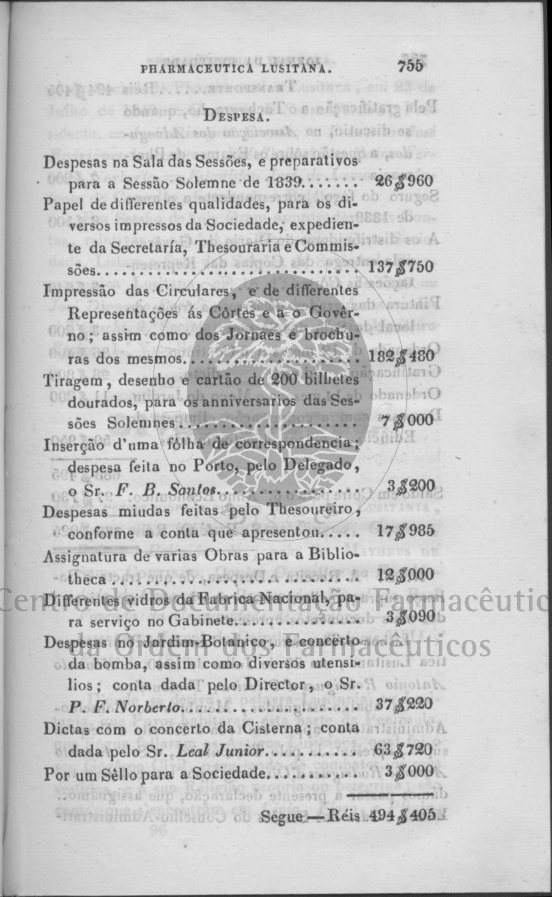 PHARMACEUTICA LUSITANA. 755
DESPESA.
Despesas na Sala das Sessões, e preparativos
para a Sessão Solemne de 1839....... 26$960
Papel de differentes qualidades, para os di-
versos impressos da Sociedade, expedien-
te da Secretaría, Thesouraria e Commis-
sões.................................. 137$750
Impressão das Circulares, e de differentes
Representações ás Côrtes e a o Gover-
no; assim como dos Jornaes e brochu-
ras dos mesmos...................... 182$480
Tiragem, desenho e cartão de 200 bilhetes
dourados, para os anniversarios das Ses-
sões Solemnes........................ 7$000
Inserção d'uma fôlha de correspondencia;
despesa feita no Porto, pelo Delegado,
o Sr. F. B. Santos................. 3$200
Despesas miudas feitas pelo Thesoureiro,
conforme a conta que apresentou..... 17$985
Assignatura de varias Obras para a Biblio-
theca................................ 12$000
Differentes vidros da Fabrica Nacional, pa-
ra serviço no Gabinete............... 3$090
Despesas no Jardim-Botanico, e concerto
da bomba, assim como diversos utensi-
lios; conta dada pelo Director, o Sr.
P. F. Norberto...................... 37$220
Dictas com o concerto da Cisterna; conta
dada pelo Sr. Leal Junior........... 63$720
Por um Sêllo para a Sociedade........... 3$000
Segue — Réis 494$405
Centro de Documentação Farmacêutica
da Ordem dos Farmacêuticos